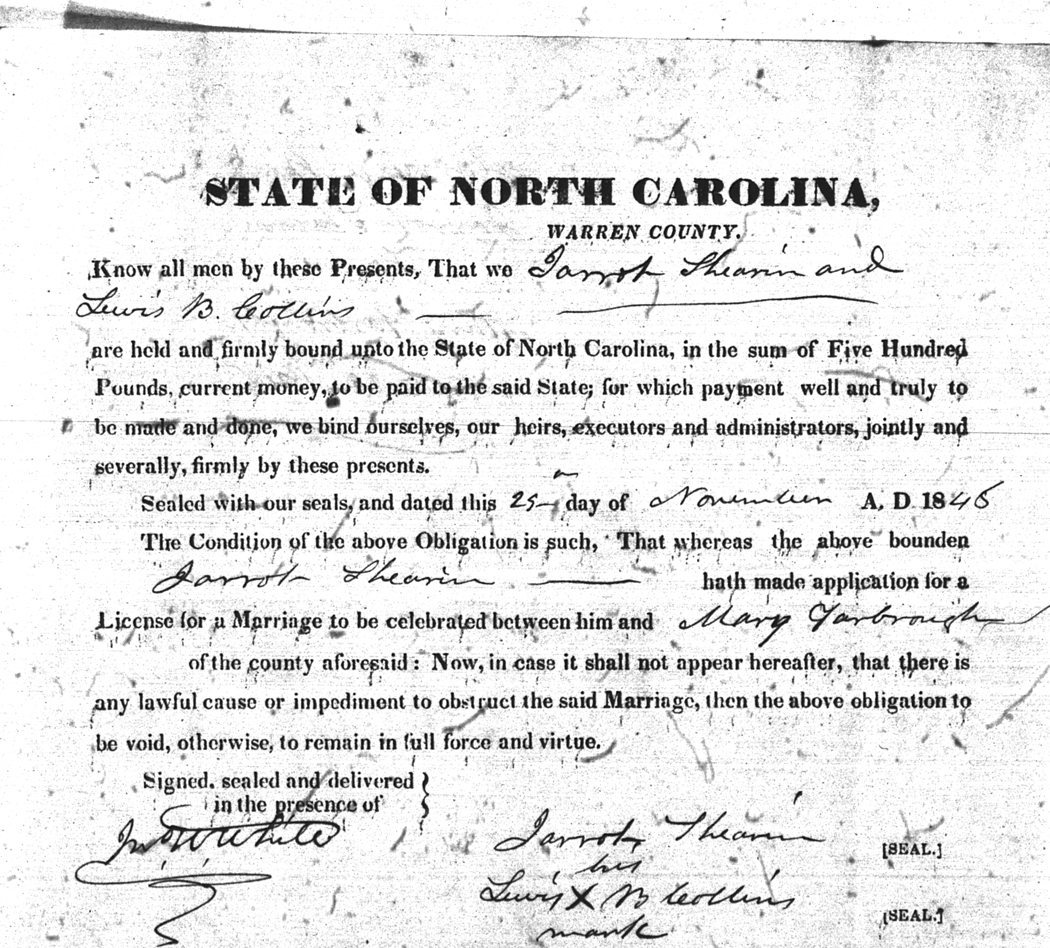 STATE OF NORTH CAROLINA,
WARREN COUNTY.
Know all men by these Presents, That we Jarrot Shearin and
Lewis B. Collins
are held and firmly bound unto the State of North Carolina, in the sum of Five Hundred
Pounds, current money, to be paid to the said State; for which payment well and truly to
be made and done, we bind ourselves, our heirs, executors and administrators, jointly and
severally, firmly by these presents.
Sealed with our seals, and dated this 25 day of November A. D. 1846
The Condition of the above Obligation is such, That whereas the above bounden
Jarrot Shearin hath made application for a
License for a Marriage to be celebrated between him and Mary Yarbrough
of the county aforesaid: Now, in case it shall not appear hereafter, that there is
any lawful cause or impediment to obstruct the said Marriage, then the above obligation to
be void, otherwise, to remain in full force and virtue.
Signed, sealed and delivered
in the presence of
Jno W White
Jarrot Shearin [SEAL.]
his
Lewis X B Collins
mark [SEAL.]